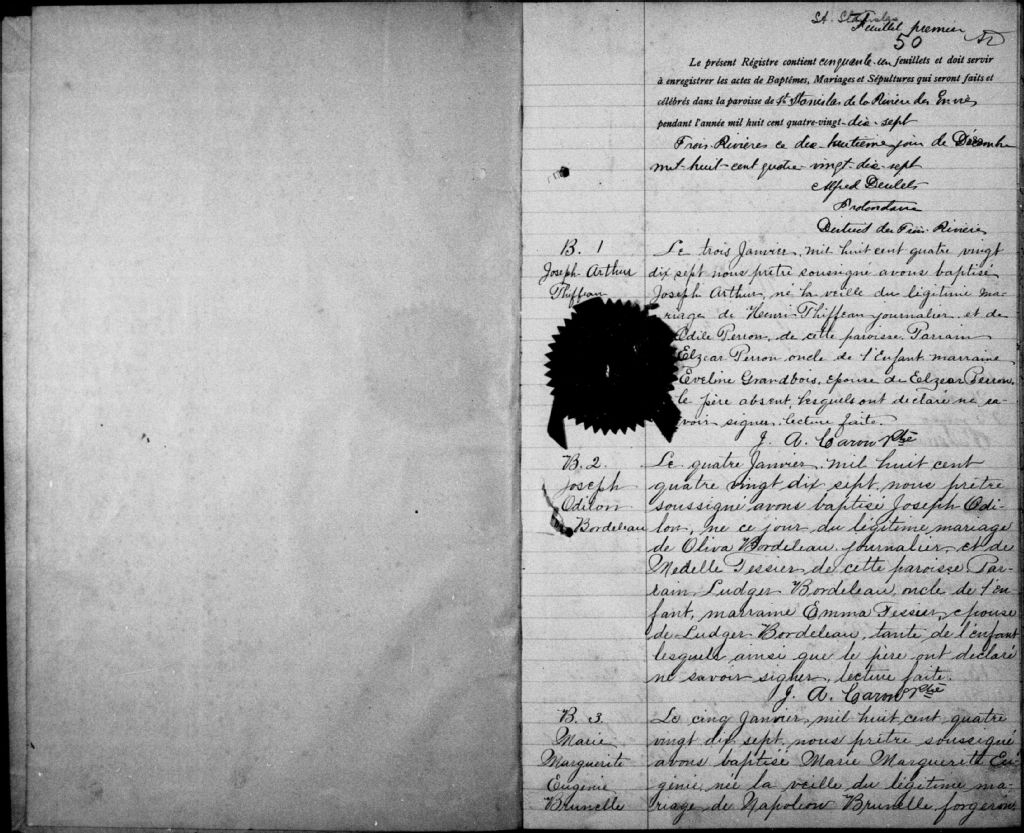 St. Stanislas
Feuillet premier
50
Le présent Régistre contient cinquante-un feuillets et doit servir
à enregistrer les actes de Baptêmes, Mariages et Sépultures qui seront faits et
célébrés dans la paroisse de St. Stanislas de la Rivière des Envies
pendant l'année mil huit cent quatre-vingt-dix-sept
Trois-Rivières ce dix-huitième jour de Décembre
mil-huit-cent quatre-vingt-dix-sept
Alfred Desilets
Protonotaire
District des Trois Rivières
B. 1
Joseph Arthur
Thiffeau
Le trois Janvier, mil huit cent quatre vingt
dix sept nous prêtre soussigné avons baptisé
Joseph Arthur, né la veille du légitime ma-
riage de Henri Thiffeau journalier et de
Odile Perron, de cette paroisse. Parrain
Elzear Perron oncle de l'Enfant marraine
Eveline Grandbois, epouse de Elzear Perron,
le père absent, lesquels ont declaré ne sa-
voir signer, lecture faite.
J. A. Caron Ptre
B. 2.
Joseph
Odilon
Bordeleau
Le quatre Janvier, mil huit cent
quatre vingt dix sept, nous prêtre
soussigné avons baptisé Joseph Odi-
lon, né ce jour du légitime mariage
de Oliva Bordeleau journalier et de
Medelle Tessier de cette paroisse. Par-
rain Ludger Bordeleau, oncle de l'en-
fant, marraine Emma Tessier, epouse
de Ludger Bordeleau, tante de l'enfant
lesquels ainsi que le père ont déclaré
ne savoir signer, lecture faite.
J. A. Caron Ptre
B. 3.
Marie
Marguerite
Eugénie
Brunelle
Le cinq Janvier, mil huit cent quatre
vingt dix sept, nous prêtre soussigné
avons baptisé Marie Marguerite Eu-
génie, née la veille du légitime ma-
riage de Napoléon Brunelle, forgeron,